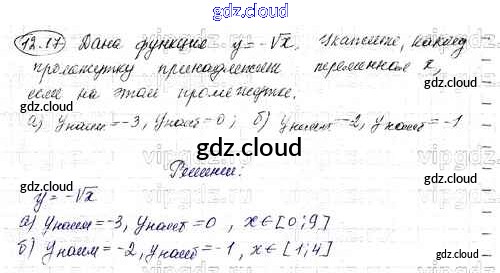 gdz.cloud
12.17 Дана функция y = -√x. Укажите, какому
промежутку принадлежит переменная x,
если на этом промежутке.
gdz.cloud
gdz.cloud
а) yнаим = -3, yнаиб = 0; б) yнаим = -2, yнаиб = -1
gdz.cloud
Решение:
y = -√x
gdz.cloud
gdz.cloud
а) yнаим = -3, yнаиб = 0, x ∈ [0; 9]
б) yнаим = -2, yнаиб = -1, x ∈ [1; 4]
gdz.cloud